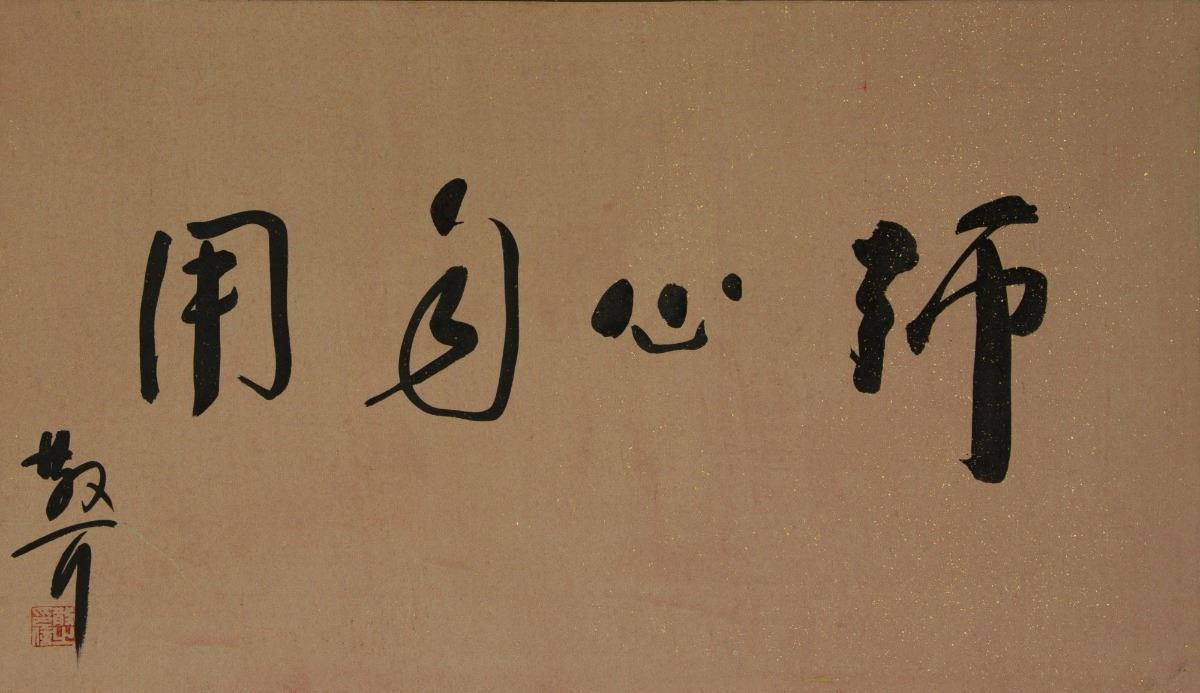 師心自用
散耳